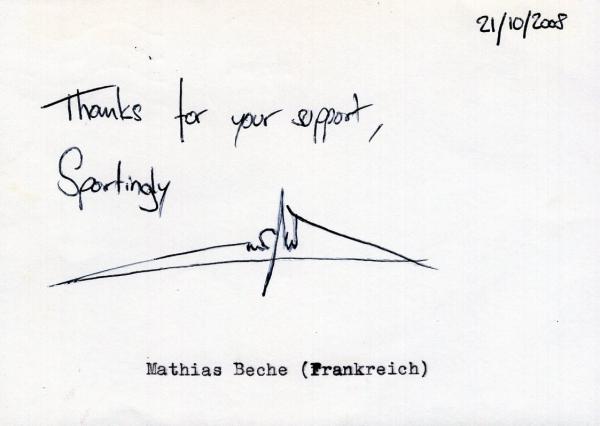 21/10/2008
Thanks for your support,
Sportingly
Mathias Beche (Frankreich)